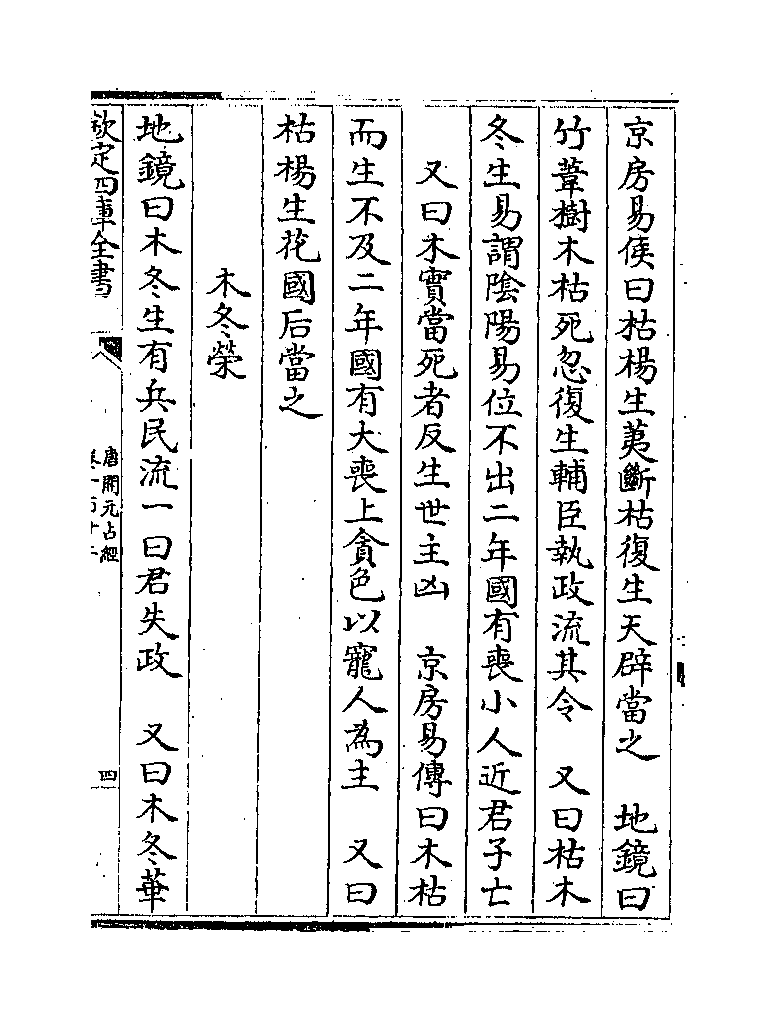 京房易候曰枯楊生荑斷枯復生天辟當之　地鏡曰
竹葦樹木枯死忽復生輔臣執政流其令　又曰枯木
冬生易謂陰陽易位不出二年國有喪小人近君子亡
又曰木實當死者反生世主凶　京房易傳曰木枯
而生不及二年國有大喪上貪色以寵人為主　又曰
枯楊生花國后當之
木冬榮
地鏡曰木冬生有兵民流一曰君失政　又曰木冬華
欽定四庫全書
唐開元占經
四